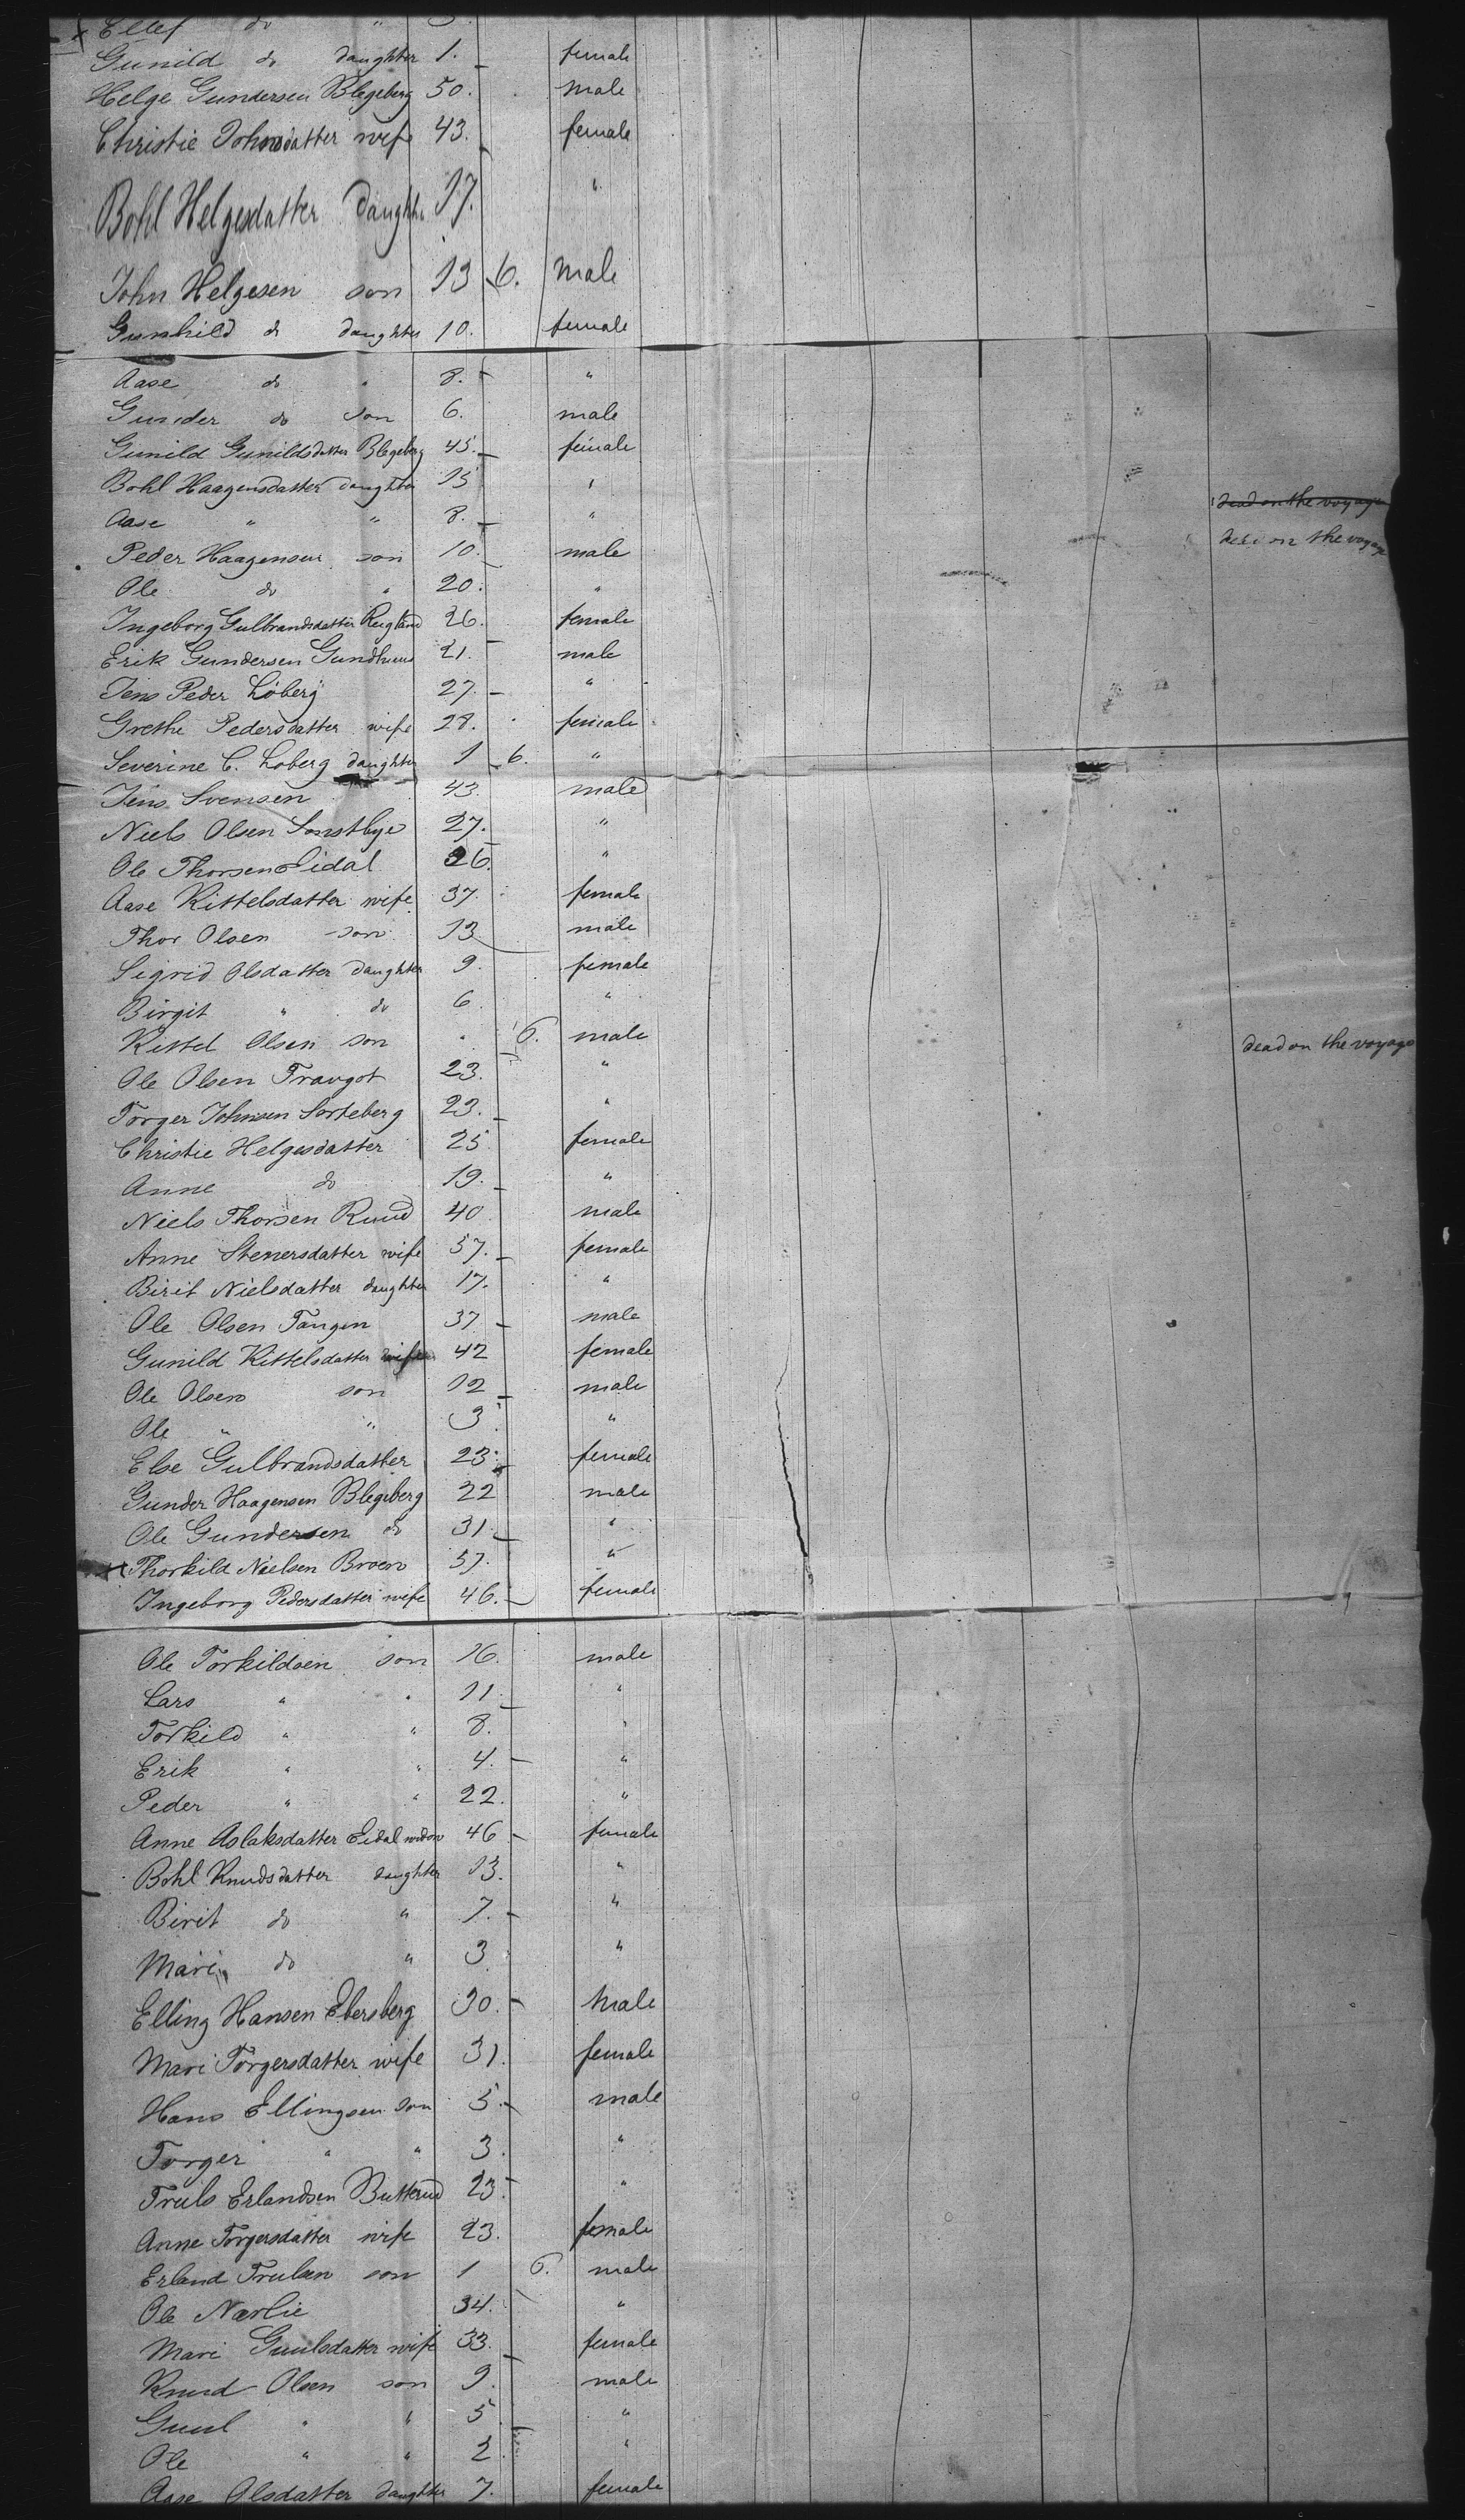 Ellef do "
Gunild do daughter 1. female
Helge Gundersen Blegeberg 50. male
Christie Johnsdatter wife 43. female
Bohl Helgesdatter daughter 17. "
John Helgesen son 13 6. male
Gunhild do daughter 10. female
Aase do " 8. "
Gunder do son 6. male
Gunild Gunildsdatter Blegeberg 45. female
Bohl Haagensdatter daughter 15 " dead on the voyage
Aase " " 8. " dead on the voyage
Peder Haagensen son 10. male
Ole do " 20. "
Ingeborg Gulbrandsdatter Rugland 26. female
Erik Gundersen Gundhuus 21. male
Jens Peder Löberg 27. "
Grethe Pedersdatter wife 28. female
Severine C. Loberg daughter 1 6. "
Jens Svensen 43. male
Niels Olsen Sonstbye 27. "
Ole Thorsen Eidal 36. "
Aase Kittelsdatter wife 37. female
Thor Olsen son 13 male
Sigrid Olsdatter daughter 9. female
Birgit " do 6. "
Kittel Olsen son " 6. male dead on the voyage
Ole Olsen Travgot 23. "
Torger Johnsen Sorteberg 23. "
Christie Helgesdatter 25 female
Anne do 19. "
Niels Thorsen Ruud 40 male
Anne Stenersdatter wife 57. female
Birit Nielsdatter daughter 17. "
Ole Olsen Tangen 37 male
Gunild Kittelsdatter wife 42 female
Ole Olsen son 12 male
Ole " " 3. "
Else Gulbrandsdatter 23. female
Gunder Haagensen Blegeberg 22 male
Ole Gundersen do 31. "
Thorkild Nielsen Broen 57. "
Ingeborg Pedersdatter wife 46. female
Ole Torkildsen son 16. male
Lars " " 11. "
Torkild " " 8. "
Erik " " 4. "
Peder " " 22. "
Anne Aslaksdatter Eidal widow 46 female
Bohl Knudsdatter daughter 13. "
Birit do " 7. "
Mari do " 3 "
Elling Hansen Ebersberg 30. male
Mari Torgersdatter wife 31. female
Hans Ellingsen son 5. male
Torger " " 3. "
Truls Erlandsen Butterud 23. "
Anne Torgersdatter wife 23. female
Erland Trulsen son 1 6. male
Ole Nærlie 34. "
Mari Guulsdatter wife 33. female
Knud Olsen son 9. male
Guul " " 5 "
Ole " " 2 "
Aase Olsdatter daughter 7. female